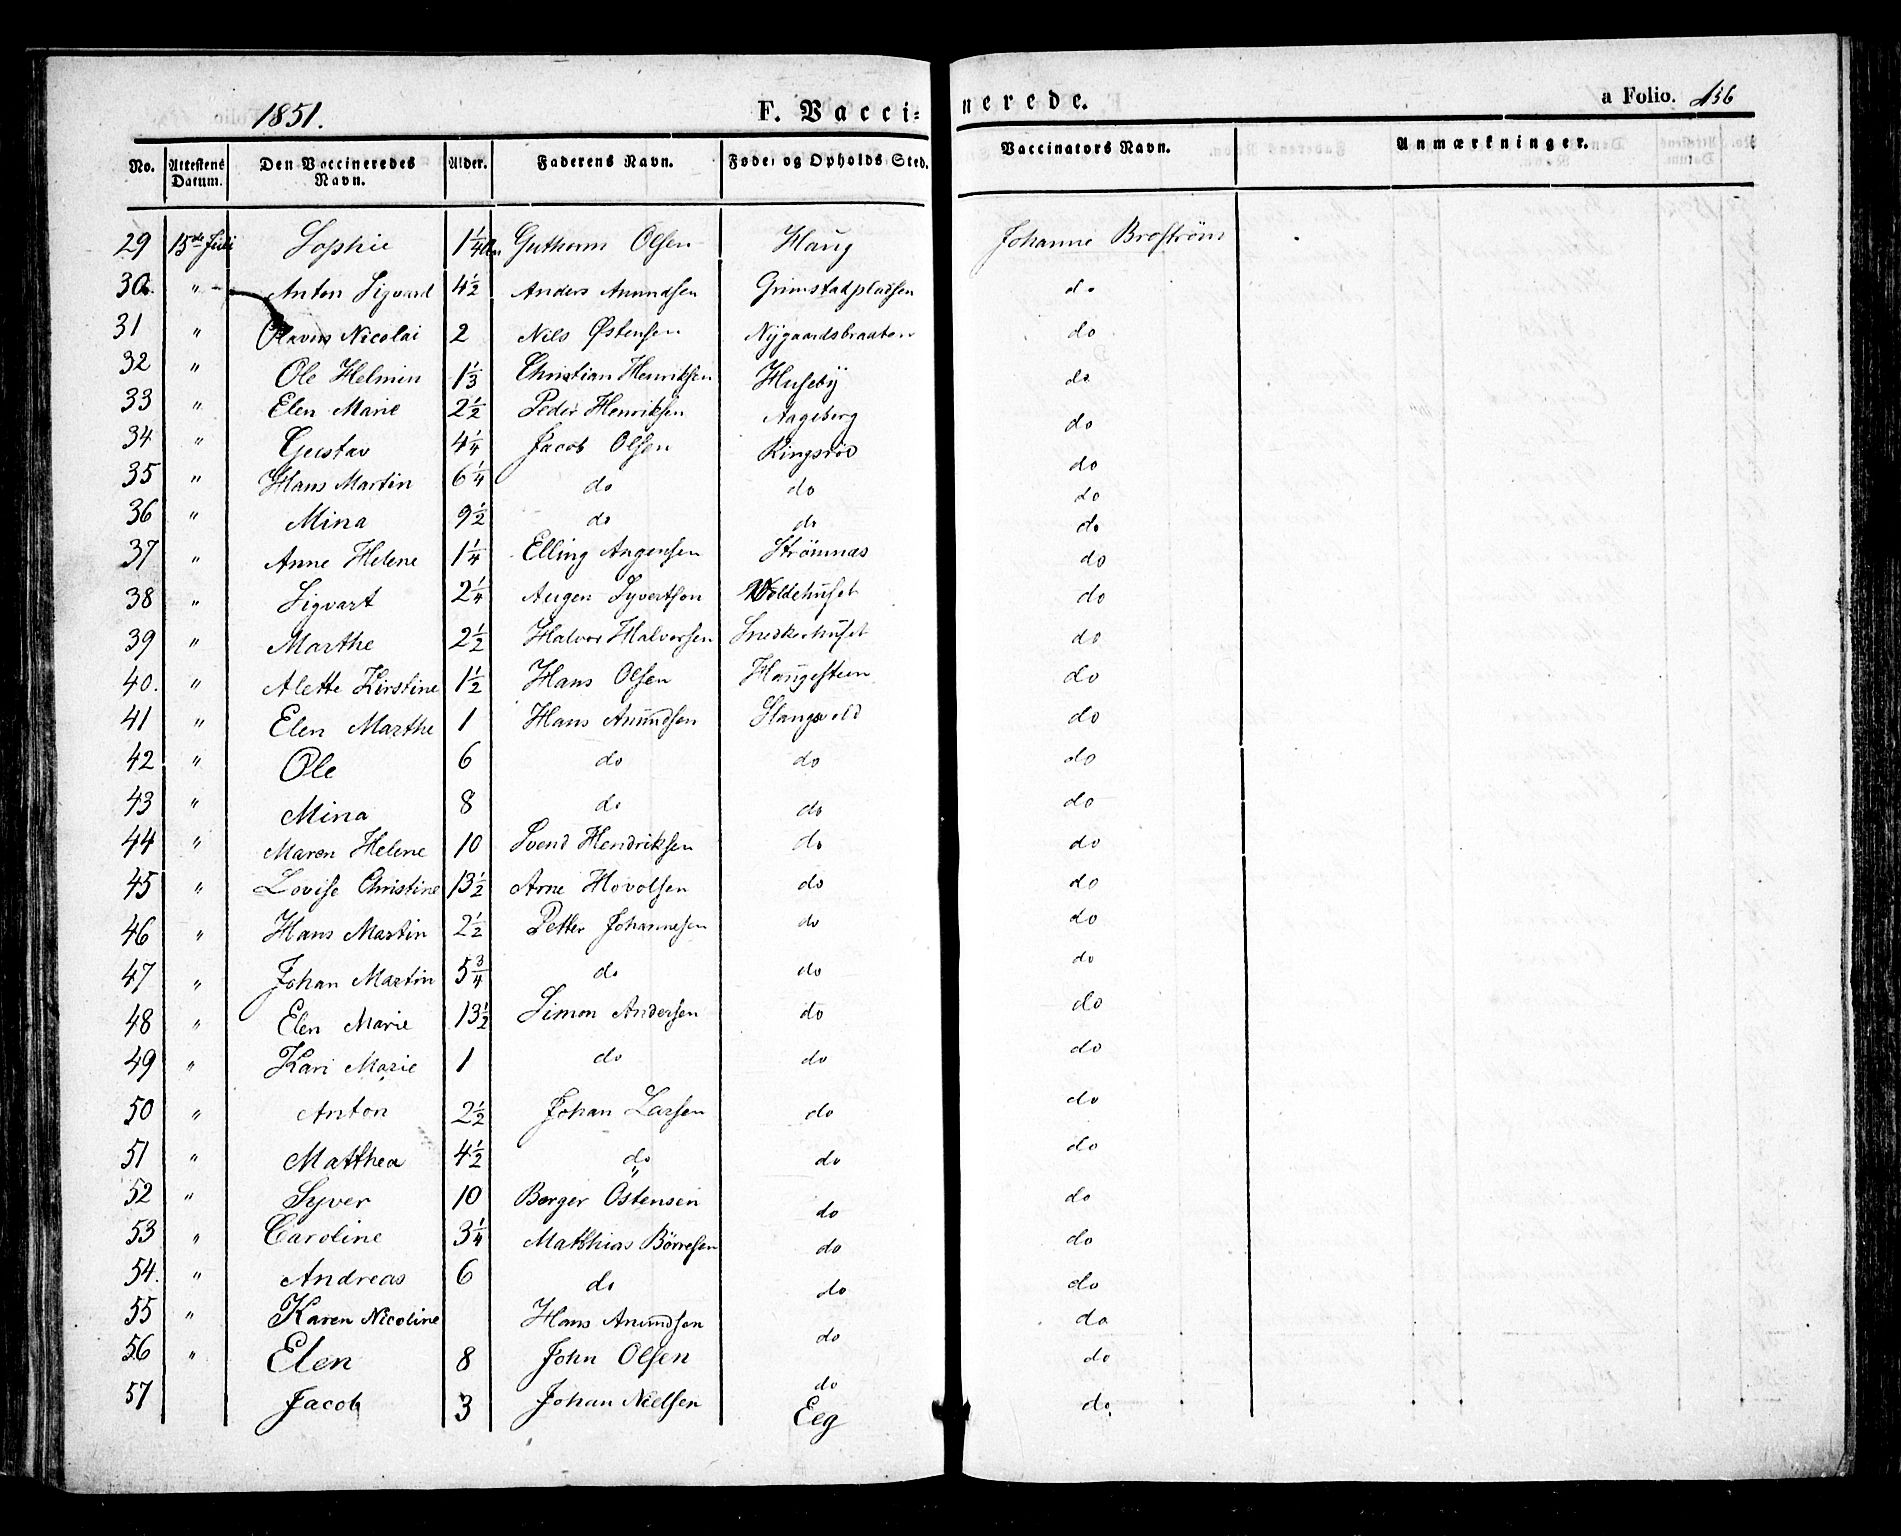 1851.
F. Vaccinerede.
a Folio. 136
No. Attestens Datum. Den Vaccineredes Navn. Alder. Faderens Navn. Føde- og Opholds Sted. Vaccinators Navn. Anmærkninger.
29 15de Juli Sophie 1 1/4 Aar Guthorm Olsen Haug Johanne Broström
30. " Anton Sigvard 4 1/2 Anders Amundsen Grimstadpladsen do
31 " Olavus Nicolai 2 Nils Østensen Nygaardsbraaten do
32 " Ole Helmin 1 1/3 Christian Henriksen Huseby do
33 " Elen Marie 2 1/2 Peder Henriksen Aageberg do
34 " Gustav 4 1/4 Jacob Olsen Ringsrød do
35 " Hans Martin 6 1/4 do do do
36 " Mina 9 1/2 do do do
37 " Anne Helene 1 1/4 Elling Augensen Strömnas do
38 " Sigvart 2 1/4 Augen Syvertson Woldehuset do
39 " Marthe 2 1/2 Halvor Halvorsen Snekkerhuset do
40. " Alette Kirstine 1 1/2 Hans Olsen Haugesteen do
41 " Elen Marthe 1 Hans Amundsen Slangsvold do
42 " Ole 6 do do do
43 " Mina 8 do do do
44 " Maren Helene 10 Svend Hendriksen do do
45 " Lovise Christine 13 1/2 Arne Hovolsen do do
46 " Hans Martin 2 1/2 Petter Johannesen do do
47 " Johan Martin 5 3/4 do do do
48 " Elen Marie 13 1/2 Simon Andersen do do
49 " Kari Marie 1 do do do
50 " Anton 2 1/2 Johan Larsen do do
51 " Matthea 4 1/2 do do do
52 " Syver 10 Berger Östensen do do
53 " Caroline 3 1/4 Matthias Börresen do do
54. " Andreas 6 do do do
55 " Karen Nicoline Hans Amundsen do do
56 " Elen 8 John Olsen do do
57 Jacob 3 Johan Nielsen Eeg do